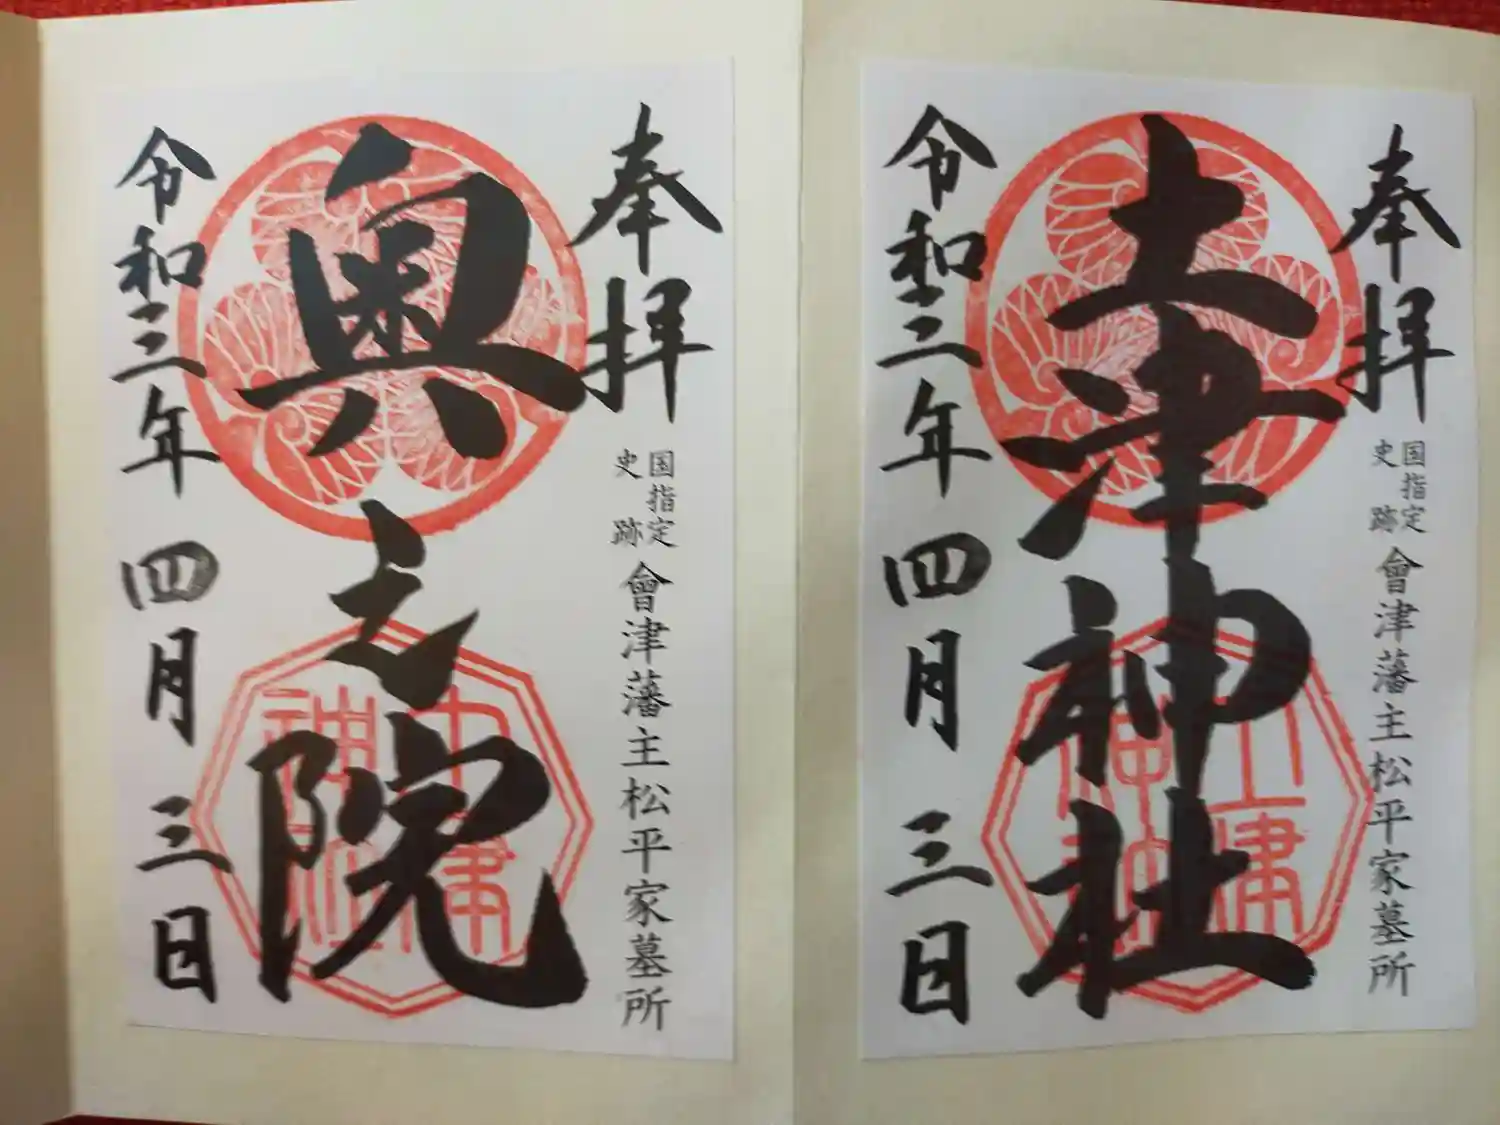 奉拝
国指定
史跡
會津藩主松平家墓所
土津神社
令和三年四月三日
奉拝
国指定
史跡
會津藩主松平家墓所
奥之院
令和三年四月三日